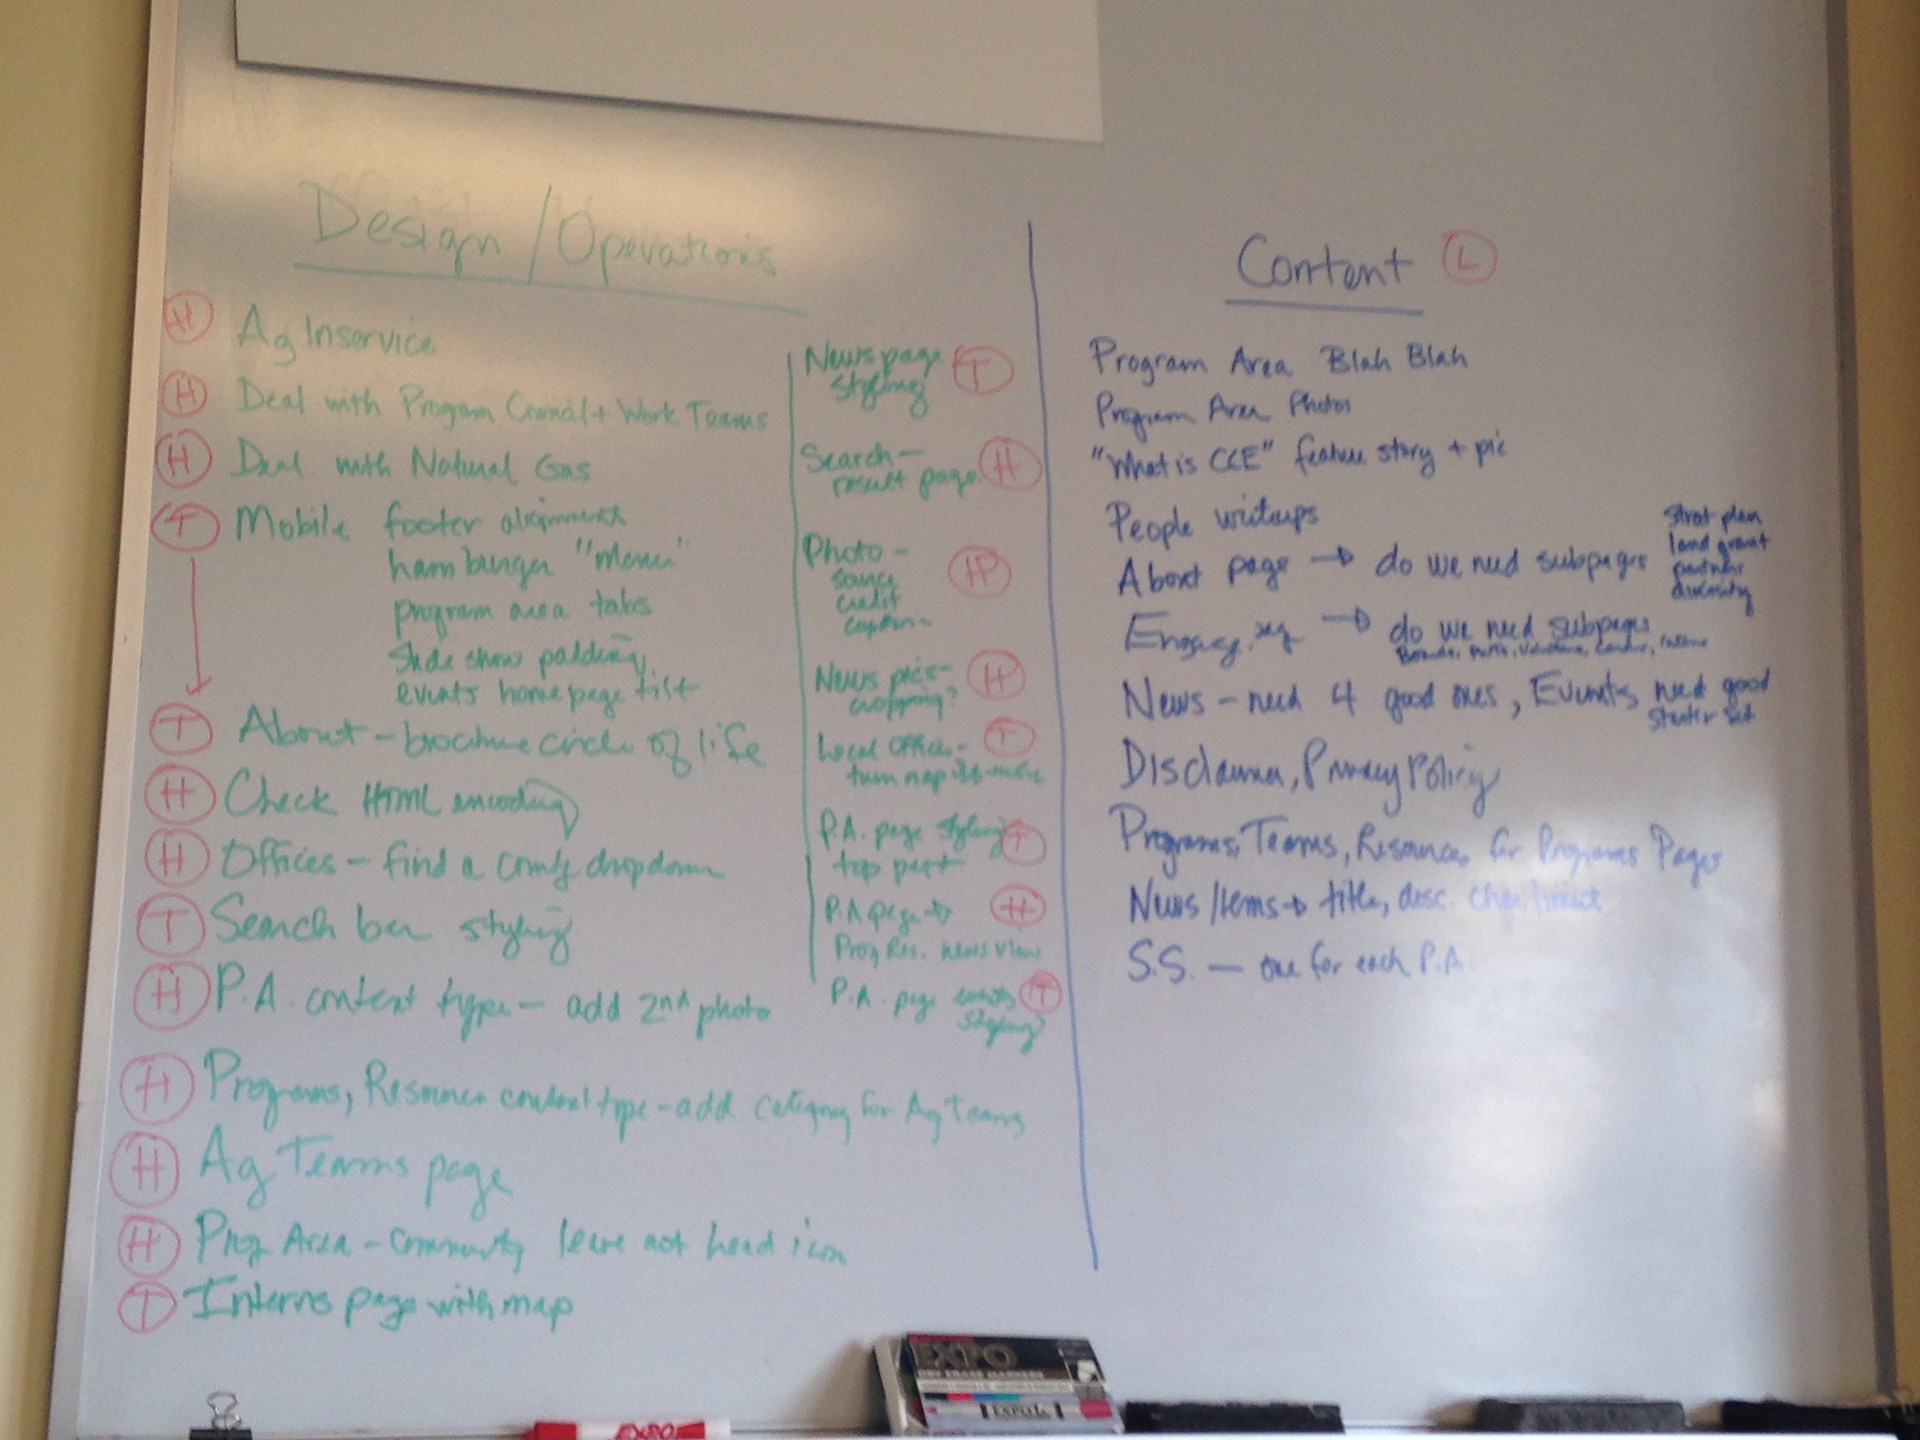 Design / Operations
H Ag Inservice
H Deal with Program Council + Work Teams
H Deal with Natural Gas
T Mobile footer alignment
hamburger "menu"
program area tabs
Slide show padding
events homepage tilt
T About - brochure circle of life
H Check HTML encoding
H Offices - find a county dropdown
T Search bar styling
H P.A. content type - add 2nd photo
H Programs, Resources content type - add category for Ag Teams
H Ag Teams page
H Prog Area - Community leave not head icon
T Interns page with map
News page T
styling
Search - H
result page
Photo -
source
credit
caption
News pics - H
cropping?
Local Office - T
turn map
P.A. page styling T
top part
P.A page → H
Prog Res. news view
P.A. page events T
styling
Content L
Program Area Blah Blah
Program Area Photos
"What is CCE" feature story + pic
People writeups
About page → do we need subpages
Strat plan
land grant
partners
diversity
Engage → do we need subpages
News - need 4 good ones, Events need good
starter set
Disclaimer, Privacy Policy
Programs, Teams, Resources for Programs Pages
News Items → title, desc.
S.S. — one for each P.A.
EXPO
DRY ERASE MARKERS
EXPO
EXPO